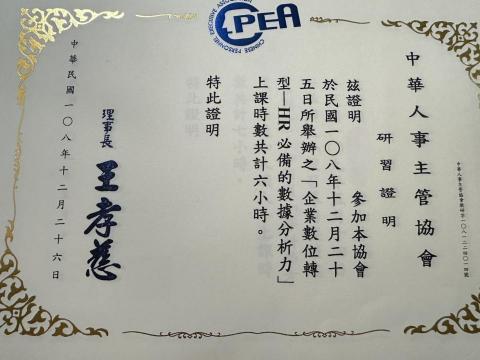 CPEA
CHINESE PERSONNEL EXECUTIVE ASSOCIATION
中華人事主管協會
研習證明
茲證明 參加本協會
於民國一〇八年十二月二十
五日所舉辦之「企業數位轉
型—HR 必備的數據分析力」
上課時數共計六小時。
特此證明
理事長 王孝慈
中華民國一〇八年十二月二十六日